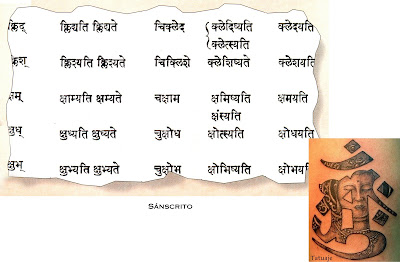 क्लिद् क्लिद्यति क्लिद्यते चिक्लेद क्लेदिष्यति क्लेदयति
क्लेत्स्यति
क्लिश् क्लिश्यति क्लिश्यते चिक्लिशे क्लेशिष्यति क्लेशयति
क्षम् क्षाम्यति क्षम्यते चक्षाम क्षमिष्यति क्षमयति
क्षंस्यति
क्षुध् क्षुध्यति क्षुध्यते चुक्षोध क्षोत्स्यति क्षोधयति
क्षुभ् क्षुभ्यति क्षुभ्यते चुक्षोभ क्षोभिष्यति क्षोभयति
Sánscrito
Tatuaje